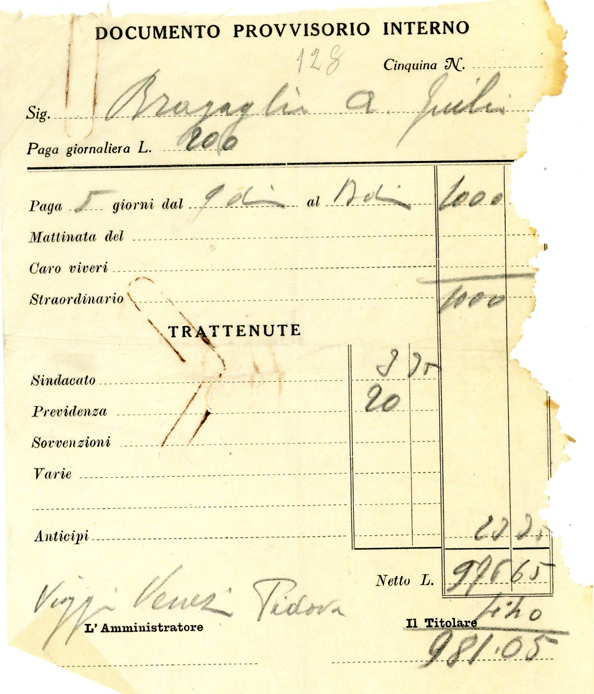 DOCUMENTO PROVVISORIO INTERNO
128
Cinquina N.
Sig. Bragaglia a.
Paga giornaliera L. 200
Paga 5 giorni dal 9 al 1000
Mattinata del
Caro viveri
Straordinario 1000
TRATTENUTE
Sindacato
Previdenza 20
Sovvenzioni
Varie
Anticipi
Netto L. 976 65
Venezi Padova
L'Amministratore
Il Titolare
981.05